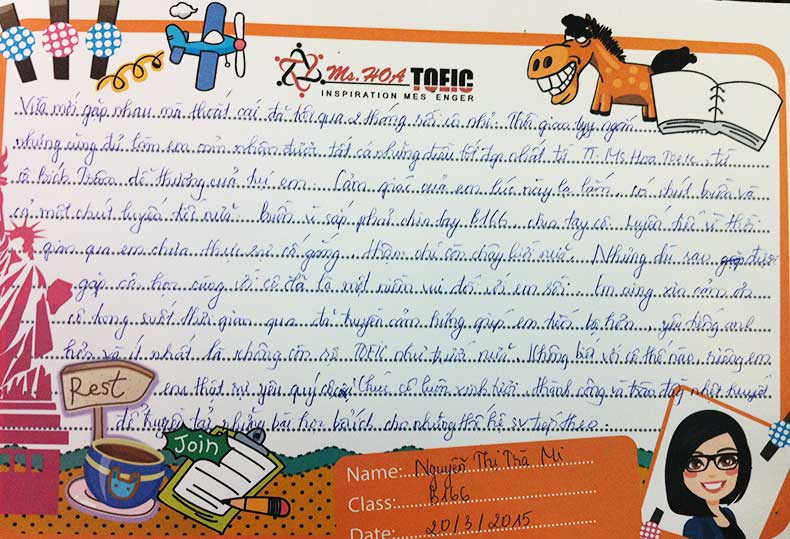 Ms. HOA TOEIC
INSPIRATION MES ENGER
Vừa mới gặp nhau mà thoắt cái đã trôi qua 2 tháng rồi cô nhỉ. Thời gian tuy ngắn
nhưng cũng đủ làm em cảm nhận được tất cả những điều tốt đẹp nhất từ TT. Ms. Hoa TOEIC, từ
cô Bích Trâm dễ thương của tụi em. Cảm giác của em lúc này lạ lắm, có chút buồn và
cả một chút luyến tiếc nữa. Buồn vì sắp phải chia tay B166, chia tay cô. Luyến tiếc vì thời
gian qua em chưa thực sự cố gắng. Thậm chí còn chây lười nữa. Nhưng dù sao được
gặp cô, học cùng với cô đã là một niềm vui đối với em rồi. Em cũng xin cảm ơn
cô trong suốt thời gian qua đã truyền cảm hứng giúp em tiến bộ hơn, yêu tiếng anh
hơn và ít nhất là không còn sợ TOEIC như trước nữa. Không biết với cô thế nào, riêng em
em thật sự yêu quý cô. Chúc cô luôn xinh tươi, thành công và tràn đầy nhiệt huyết
để truyền tải những bài học bổ ích cho những thế hệ sv tiếp theo.
Rest
Join
Name: Nguyễn Thị Trà Mi
Class: B166
Date: 20/3/2015